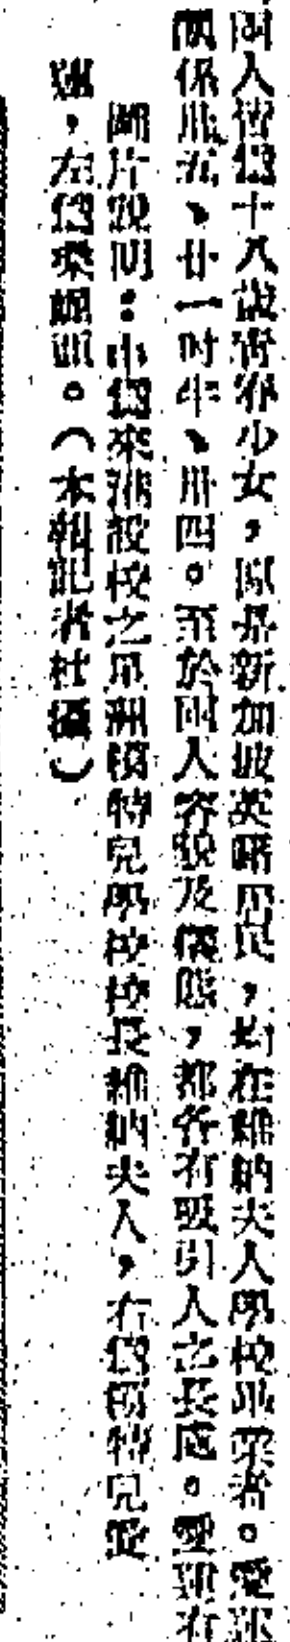 兩人皆為十八歲青春少女，原是新加坡英籍居民，均在維納夫人學校畢業者。愛
係卅五、廿一吋半、卅四。至於兩人容貌及儀態，都各有吸引人之長處。愛
圖片說明：中為來港設校之亞洲模特兒學校校長維納夫人，右為模特兒愛
，左為 。（本報記者杜攝）